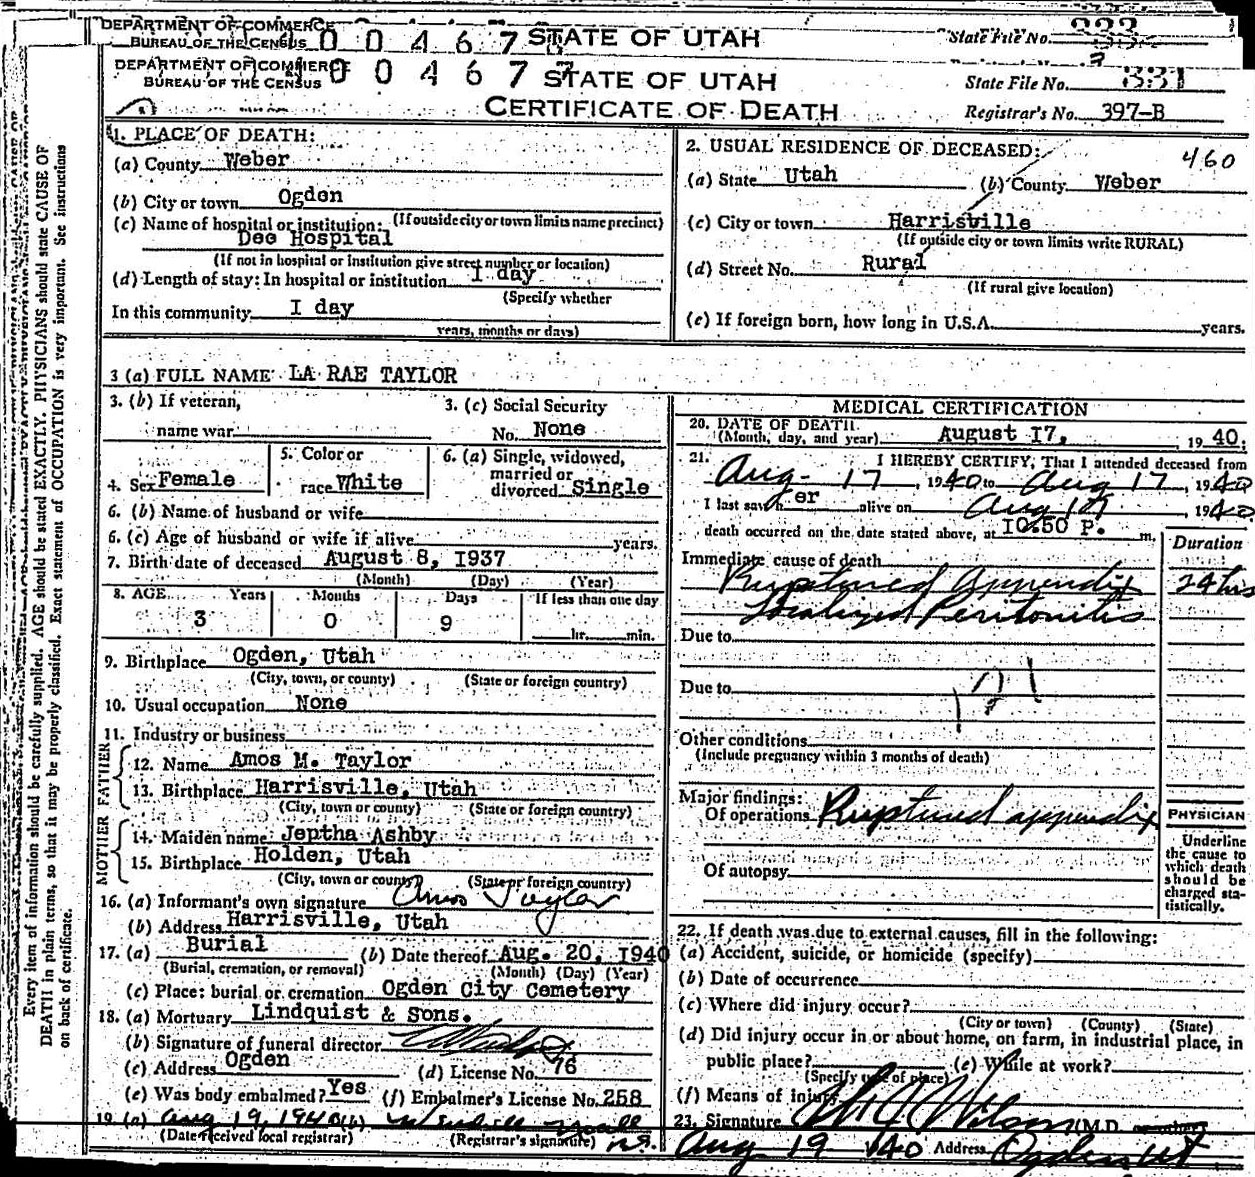 DEPARTMENT OF COMMERCE
BUREAU OF THE CENSUS
STATE OF UTAH
State File No.
DEPARTMENT OF COMMERCE
BUREAU OF THE CENSUS
0 0 4 6 7
STATE OF UTAH
CERTIFICATE OF DEATH
State File No. 331
Registrar's No. 397-B
1. PLACE OF DEATH:
(a) County Weber
(b) City or town Ogden
(If outside city or town limits name precinct)
(c) Name of hospital or institution:
Dee Hospital
(If not in hospital or institution give street number or location)
(d) Length of stay: In hospital or institution I day
(Specify whether
In this community I day
years, months or days)
2. USUAL RESIDENCE OF DECEASED:
460
(a) State Utah (b) County Weber
(c) City or town Harrisville
(If outside city or town limits write RURAL)
(d) Street No. Rural
(If rural give location)
(e) If foreign born, how long in U.S.A. years.
3 (a) FULL NAME LA RAE TAYLOR
3. (b) If veteran,
name war
3. (c) Social Security
No. None
4. Sex Female
5. Color or
race White
6. (a) Single, widowed,
married or
divorced Single
6. (b) Name of husband or wife
6. (c) Age of husband or wife if alive years.
7. Birth date of deceased August 8, I937
(Month) (Day) (Year)
8. AGE Years Months Days If less than one day
3 0 9 hr. min.
9. Birthplace Ogden, Utah
(City, town, or county) (State or foreign country)
10. Usual occupation None
11. Industry or business
FATHER
12. Name Amos M. Taylor
13. Birthplace Harrisville, Utah
(City, town or county) (State or foreign country)
MOTHER
14. Maiden name Jeptha Ashby
15. Birthplace Holden, Utah
(City, town or county) (State or foreign country)
16. (a) Informant's own signature Amos Taylor
(b) Address Harrisville, Utah
17. (a) Burial (b) Date thereof Aug. 20, I940
(Burial, cremation, or removal) (Month) (Day) (Year)
(c) Place: burial or cremation Ogden City Cemetery
18. (a) Mortuary Lindquist & Sons.
(b) Signature of funeral director
(c) Address Ogden (d) License No. 76
(e) Was body embalmed? Yes (f) Embalmer's License No. 258
19. (a) Aug 19, 1940 (b)
(Date received local registrar) (Registrar's signature)
MEDICAL CERTIFICATION
20. DATE OF DEATH
(Month, day, and year) August I7, 1940.
21. I HEREBY CERTIFY, That I attended deceased from
Aug- 17, 1940 to Aug 17, 1940
I last saw her alive on Aug 17 1940
death occurred on the date stated above, at I0.50 P. m.
Duration
Immediate cause of death
Ruptured Appendix 24 hrs
Localized Peritonitis
Due to
Due to
121
Other conditions
(Include pregnancy within 3 months of death)
Major findings:
Of operations Ruptured appendix
Of autopsy
PHYSICIAN
Underline
the cause to
which death
should be
charged sta-
tistically.
22. If death was due to external causes, fill in the following:
(a) Accident, suicide, or homicide (specify)
(b) Date of occurrence
(c) Where did injury occur?
(City or town) (County) (State)
(d) Did injury occur in or about home, on farm, in industrial place, in
public place? (e) While at work?
(Specify type of place)
(f) Means of injury
23. Signature Wilson (M.D. or other)
Aug 19 '40 Address Ogden Ut
Every item of information should be carefully supplied. AGE should be stated EXACTLY. PHYSICIANS should state CAUSE OF
DEATH in plain terms, so that it may be properly classified. Exact statement of OCCUPATION is very important. See instructions
on back of certificate.